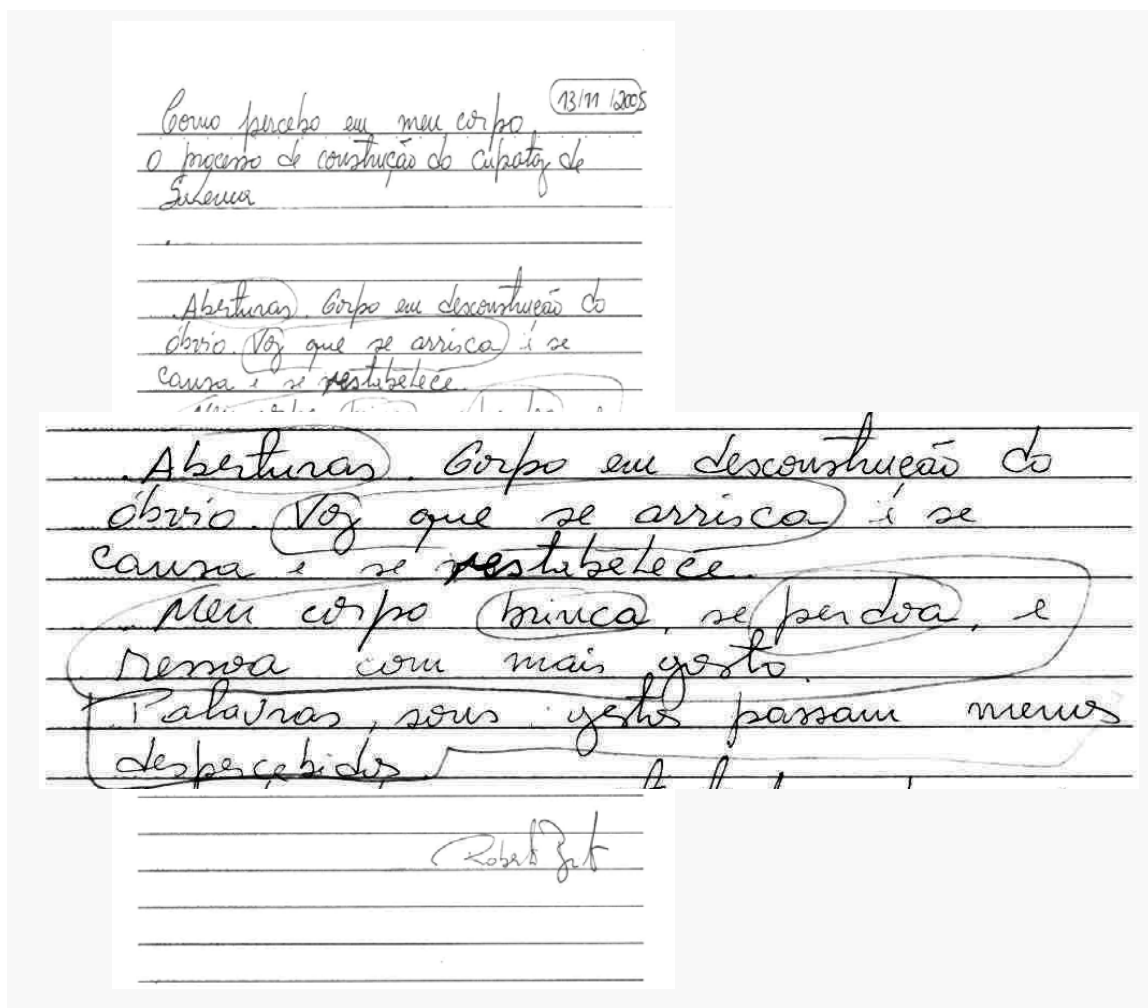 13/11/2005
Como percebo em meu corpo
o processo de construção do de
Aberturas. Corpo em desconstrução do
óbvio. Voz que se arrisca é se
causa e se restabelece.
Meu corpo brinca
Aberturas. Corpo em desconstrução do
óbvio. Voz que se arrisca é se
causa e se restabelece.
Meu corpo brinca, se perdoa, e
ressoa com mais gosto.
Palavras, sons gestos passam menos
despercebidos.